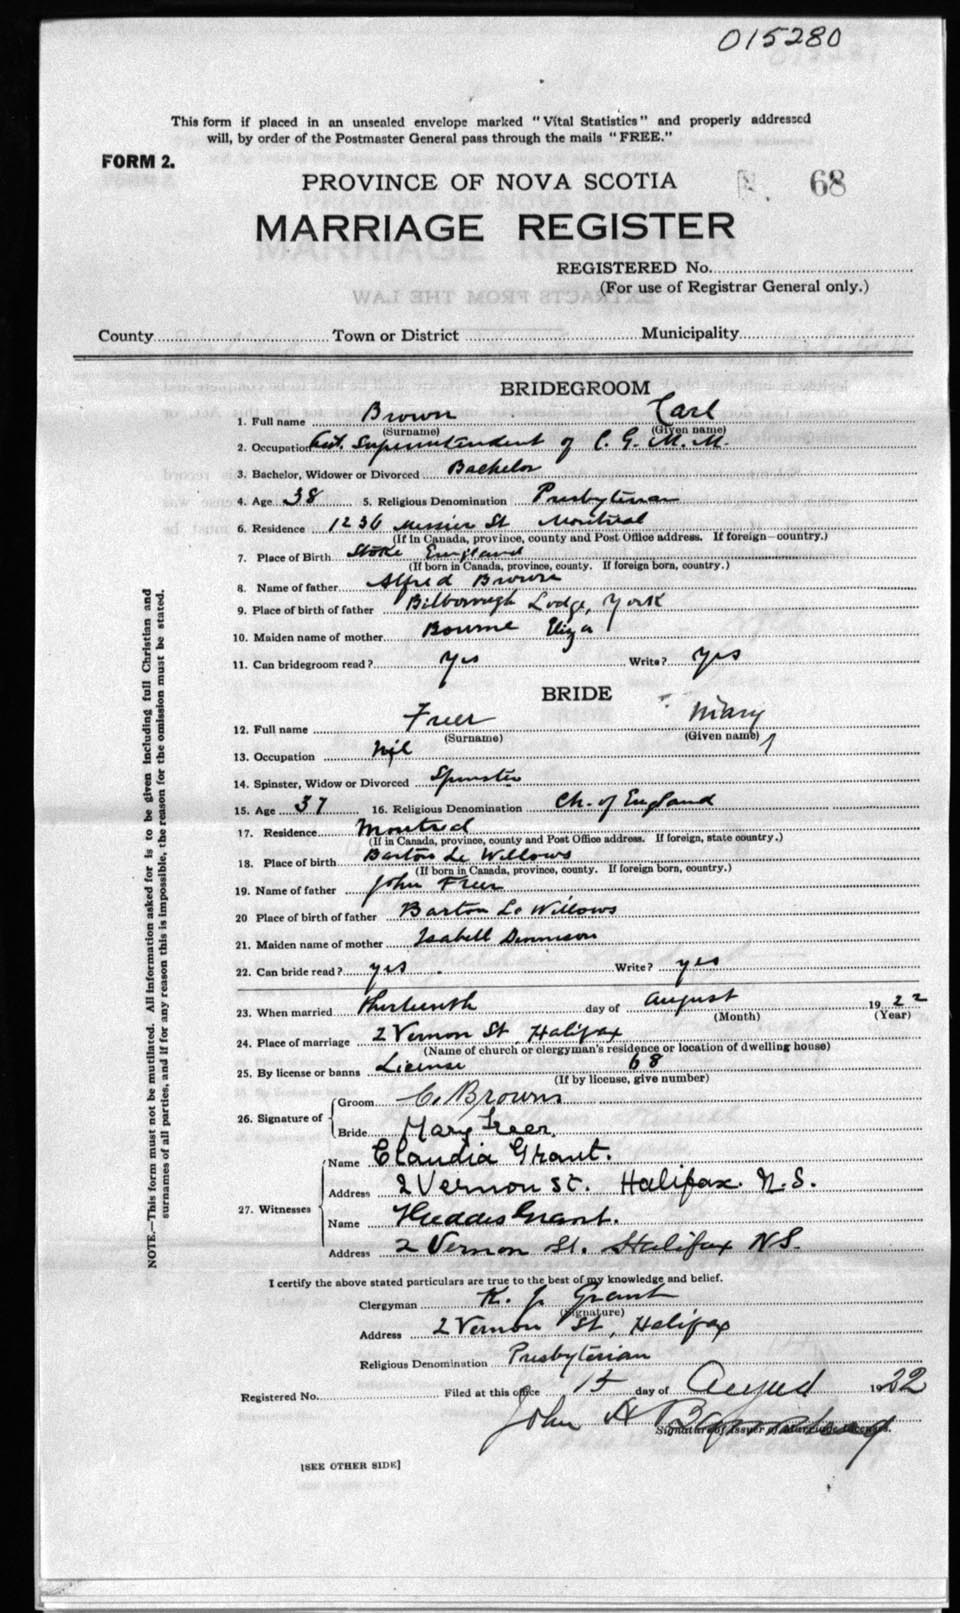 015280
This form if placed in an unsealed envelope marked "Vital Statistics" and properly addressed
will, by order of the Postmaster General pass through the mails "FREE."
FORM 2.
PROVINCE OF NOVA SCOTIA 68
MARRIAGE REGISTER
REGISTERED No.
(For use of Registrar General only.)
County Town or District Municipality
BRIDEGROOM
1. Full name Brown Carl
(Surname) (Given name)
2. Occupation Superintendent of C. G. M. M.
3. Bachelor, Widower or Divorced Bachelor
4. Age 38 5. Religious Denomination Presbyterian
6. Residence 1236 Messier St Montreal
(If in Canada, province, county and Post Office address. If foreign—country.)
7. Place of Birth Stoke England
(If born in Canada, province, county. If foreign born, country.)
8. Name of father Alfred Brown
9. Place of birth of father Bilborough Lodge, York
10. Maiden name of mother Bourne Eliza
11. Can bridegroom read? Yes Write? Yes
BRIDE
12. Full name Freer Mary
(Surname) (Given name)
13. Occupation Nil
14. Spinster, Widow or Divorced Spinster
15. Age 37 16. Religious Denomination Ch. of England
17. Residence Montreal
(If in Canada, province, county and Post Office address. If foreign, state country.)
18. Place of birth Barton Le Willows
(If born in Canada, province, county. If foreign born, country.)
19. Name of father John Freer
20 Place of birth of father Barton Le Willows
21. Maiden name of mother Isabell Dennison
22. Can bride read? yes Write? yes
23. When married Thirteenth day of August 1922
(Month) (Year)
24. Place of marriage 2 Vernon St, Halifax
(Name of church or clergyman's residence or location of dwelling house)
25. By license or banns License 68
(If by license, give number)
26. Signature of Groom C. Brown
Bride Mary Freer.
27. Witnesses Name Claudia Grant.
Address 2 Vernon St. Halifax. N.S.
Name Grant.
Address 2 Vernon St. Halifax N.S.
I certify the above stated particulars are true to the best of my knowledge and belief.
Clergyman K. J. Grant
(Signature)
Address 2 Vernon St, Halifax
Religious Denomination Presbyterian
Registered No. Filed at this office 15 day of August 1922
John A
Signature of Issuer of Marriage License.
[SEE OTHER SIDE]
NOTE.—This form must not be mutilated. All information asked for is to be given including full Christian and
surnames of all parties, and if for any reason this is impossible, the reason for the omission must be stated.